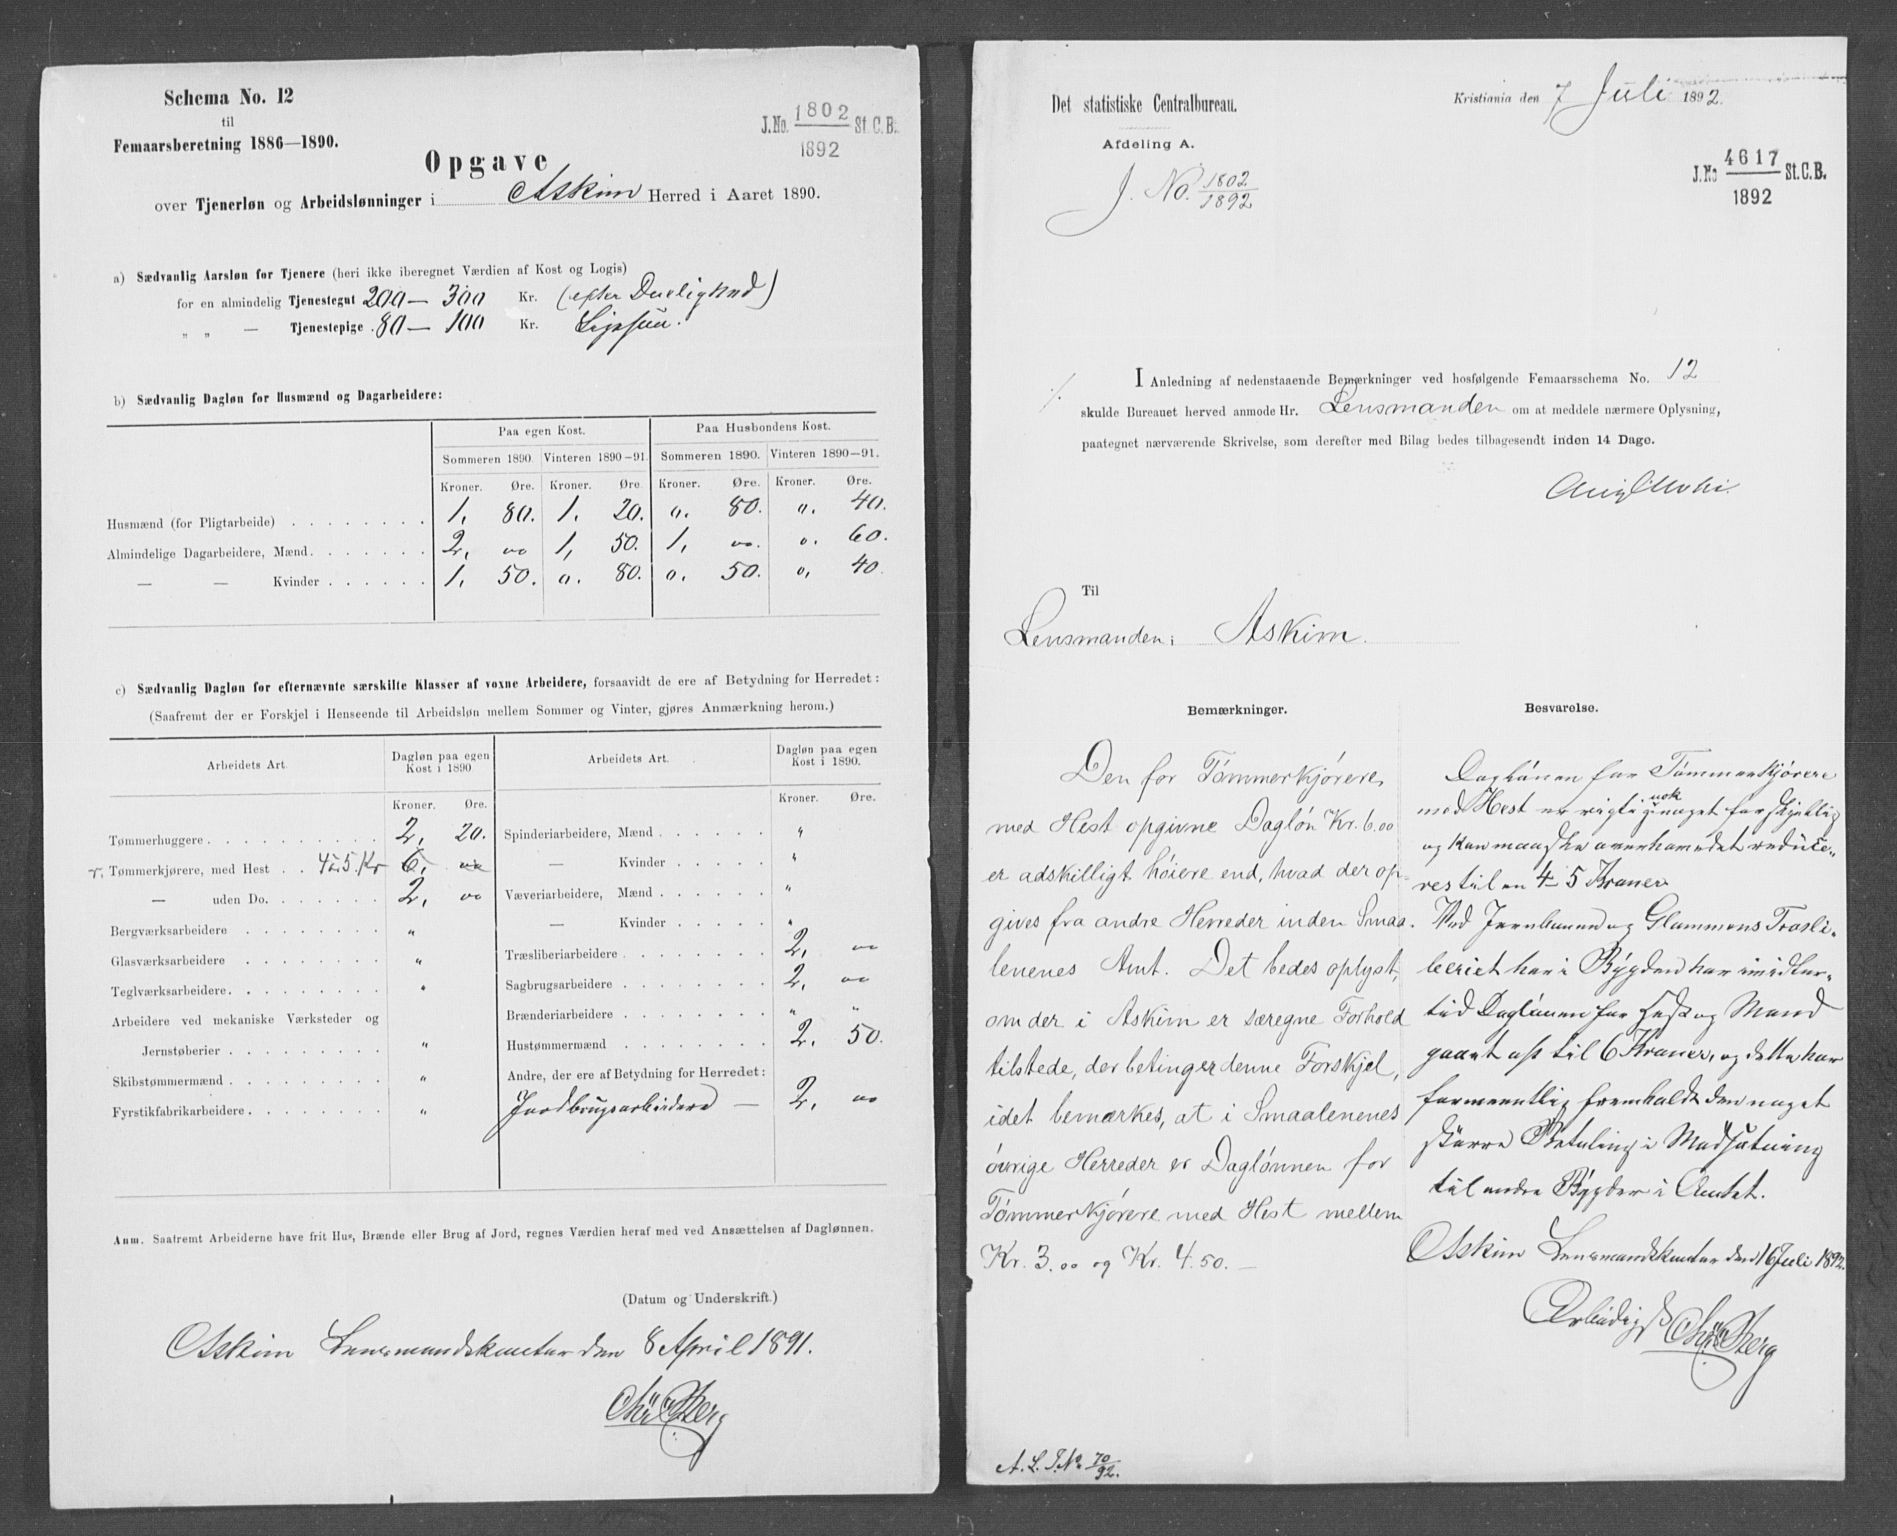 Schema No. 12
til
Femaarsberetning 1886—1890.
J.No. 1802 St. C. B.
1892
Opgave
over Tjenerløn og Arbeidslønninger i Askim Herred i Aaret 1890.
a) Sædvanlig Aarsløn for Tjenere (heri ikke iberegnet Værdien af Kost og Logis)
for en almindelig Tjenestegut 200— 300 Kr. (efter Duelighed)
„ „ — Tjenestepige . 80— 100 Kr. Ligesaa.
b) Sædvanlig Dagløn for Husmænd og Dagarbeidere:
Paa egen Kost. Paa Husbondens Kost.
Sommeren 1890. Vinteren 1890—91. Sommeren 1890. Vinteren 1890—91.
Kroner. Øre. Kroner. Øre. Kroner. Øre. Kroner. Øre.
Husmænd (for Pligtarbeide) 1. 80. 1. 20. „. 80. „. 40.
Almindelige Dagarbeidere, Mænd. 2, 00 1, 50. 1, 00. „. 60.
— — Kvinder 1. 50. „. 80. „. 50. „. 40
c) Sædvanlig Dagløn for efternævnte særskilte Klasser af voxne Arbeidere, forsaavidt de ere af Betydning for Herredet:
(Saafremt der er Forskjel i Henseende til Arbeidsløn mellem Sommer og Vinter, gjøres Anmærkning herom.)
Arbeidets Art. Dagløn paa egen Kost i 1890. Arbeidets Art. Dagløn paa egen Kost i 1890.
Kroner. Øre. Kroner. Øre.
Tømmerhuggere 2, 20. Spinderiarbeidere, Mænd „
r. Tømmerkjørere, med Hest 4à5.Kr 6, 00 — Kvinder „
— uden Do. 2, 00 Væveriarbeidere, Mænd „
Bergværksarbeidere „ — Kvinder „
Glasværksarbeidere „ Træsliberiarbeidere 2, 00
Teglværksarbeidere „ Sagbrugsarbeidere 2, 00
Arbeidere ved mekaniske Værksteder og Brænderiarbeidere „ „
Jernstøberier „ Hustømmermænd 2. 50.
Skibstømmermænd „ Andre, der ere af Betydning for Herredet:
Fyrstikfabrikarbeidere „ Jordbrugsarbeidere — 2, 00
Anm. Saafremt Arbeiderne have frit Hus, Brænde eller Brug af Jord, regnes Værdien heraf med ved Ansættelsen af Daglønnen.
(Datum og Underskrift.)
Askim Lensmandskontor den 8 April 1891.
Chr. Berg
Det statistiske Centralbureau.
Afdeling A.
J. No. 1802
1892
Kristiania den 7 Juli 1892.
J.No 4617 St. C. B.
1892
I Anledning af nedenstaaende Bemærkninger ved hosfølgende Femaarsschema No. 12
skulde Bureauet herved anmode Hr. Lensmanden om at meddele nærmere Oplysning,
paategnet nærværende Skrivelse, som derefter med Bilag bedes tilbagesendt inden 14 Dage.
Til
Lensmanden i Askim.
Bemærkninger.
Den for Tømmerkjørere
med Hest opgivne Dagløn Kr. 6.00
er adskilligt høiere end, hvad der op-
gives fra andre Herreder inden Smaa-
lenenes Amt. Det bedes oplyst,
om der i Askim er særegne Forhold
tilstede, der betinger denne Forskjel,
idet bemærkes, at i Smaalenenes
øvrige Herreder er Daglønnen for
Tømmerkjørere med Hest mellem
Kr. 3.00 og Kr. 4.50. —
Besvarelse.
Daglønen for Tømmerkjørere
med Hest er rigtignok noget forskjellig
og kan maaske overhovedet reduce-
res til en 4—5 Kroner.
Ved Jernbanen og Glommens Træsli-
beriet her i Bygden har imidler-
tid Daglønen for Hest og Mand
gaaet op til 6 Kroner, og dette har
formentlig fremholdt den noget
større Betaling i Modsætning
til andre Bygder i Amtet.
Askim Lensmandskontor den 16 Juli 1892.
Ærbødigst
Chr. Berg
A. L. J.No. 70
92.